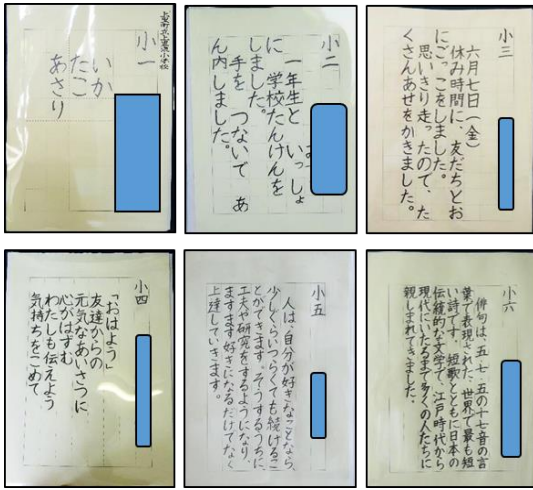 小一
いか
たこ
あさり
小二
一年生と いっしょ
に 学校たんけんを
しました。
手を つないで あ
ん内しました。
小三
六月七日(金)
休み時間に、友だちとお
にごっこをしました。
思いきり走ったので、た
くさんあせをかきました。
小四
「おはよう」
友達からの
元気なあいさつに
心がはずむ
わたしも伝えよう
気持ちをこめて
小五
人は、自分が好きなことなら、
少しくらいつらくても続けるこ
とができます。そうするうちに、
工夫や研究をするようになり、
ますます好きになるだけでなく
上達していきます。
小六
俳句は、五・七・五の十七音の言
葉で表現された、世界で最も短
い詩です。短歌とともに日本の
伝統的な文学で、江戸時代から
現代にいたるまで多くの人たちに
親しまれてきました。